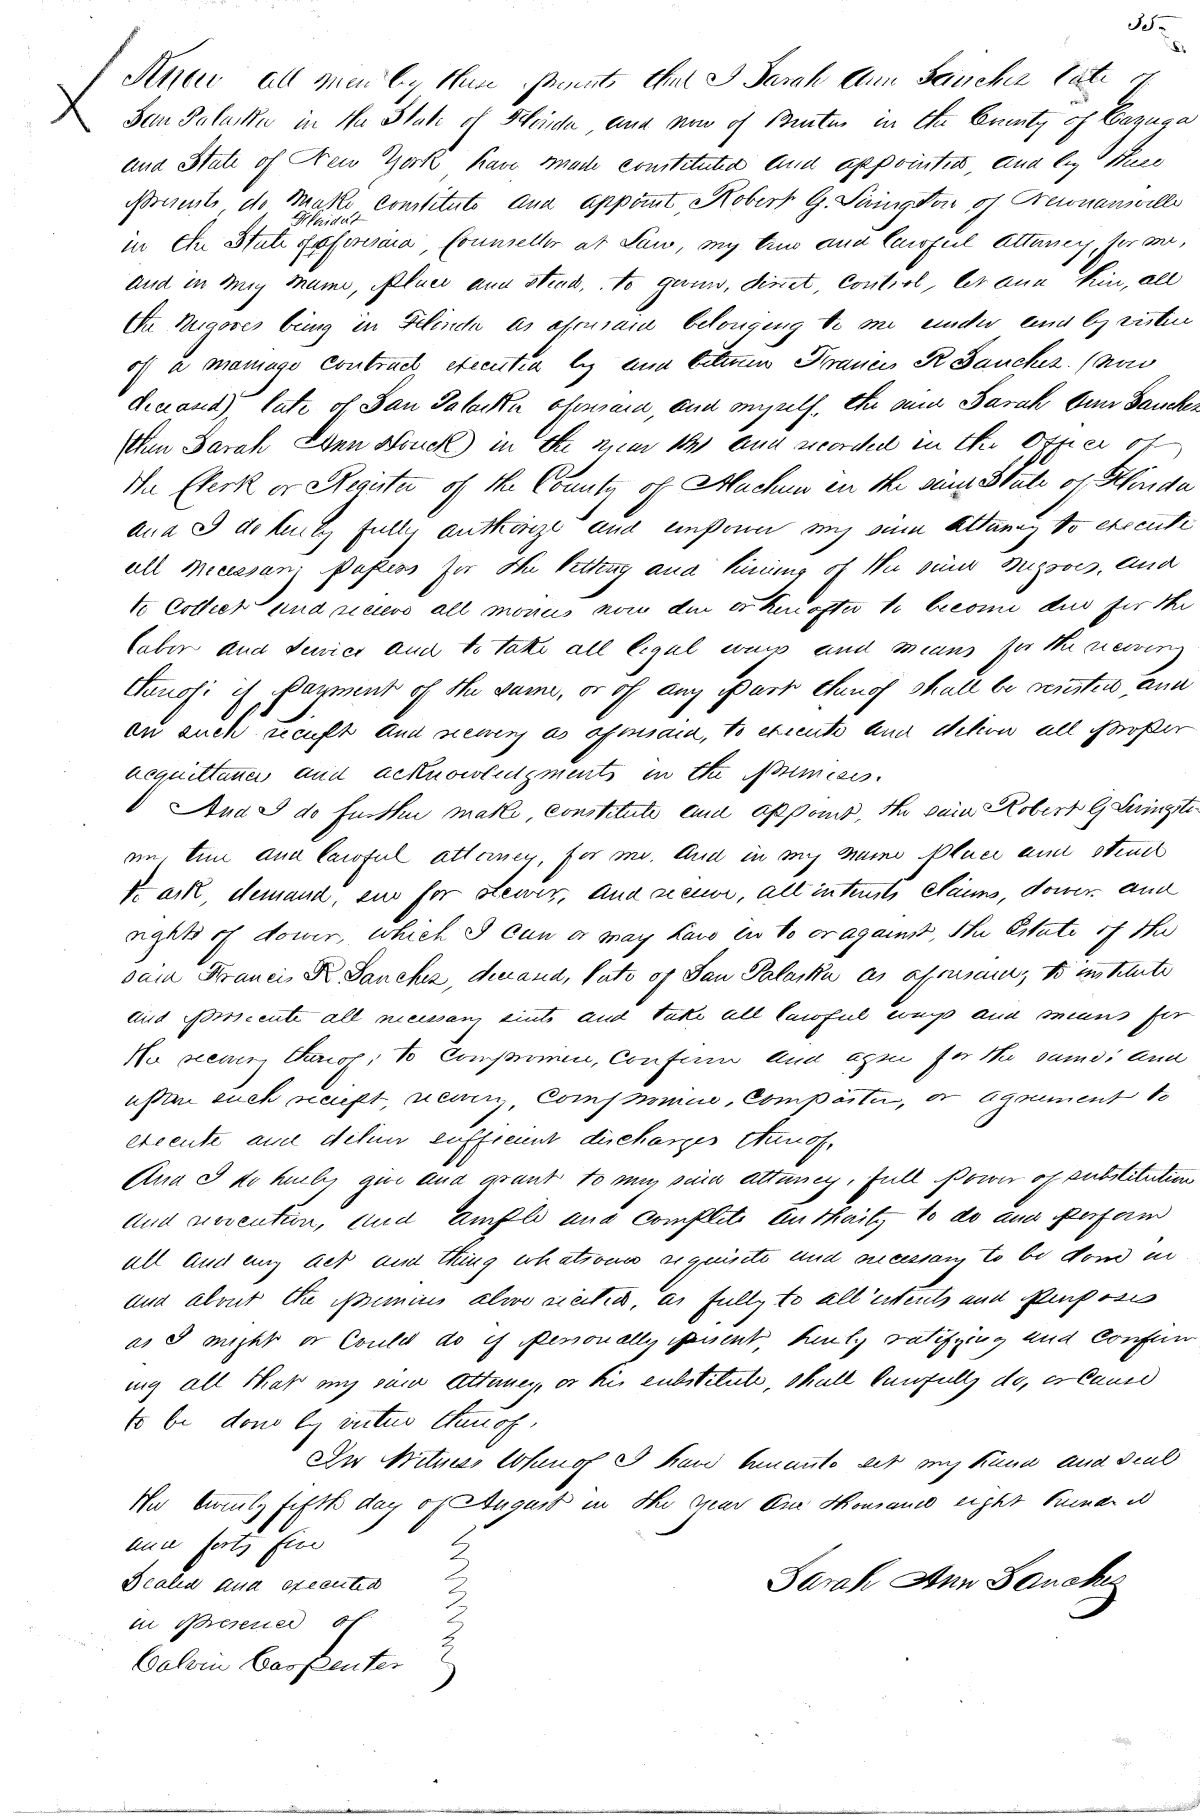 35
Know all men by these presents that I Sarah Ann Sanchez late of
San Palaska in the State of Florida, and now of Brutus in the County of Cayuga
and State of New York, have made constituted and appointed, and by these
presents, do make constitute and appoint, Robert G. Livingston, of Newnansville
Florida
in the State of aforesaid, Counsellor at Law, my true and lawful attorney, for me,
and in my name, place and stead, to govern, direct, control, let and hire, all
the Negroes being in Florida as aforesaid belonging to me under and by virtue
of a marriage contract executed by and between Francis R Sanchez (now
deceased), late of San Palaska aforesaid, and myself, the said Sarah Ann Sanchez
(then Sarah Ann Houck) in the year and recorded in the Office of
the Clerk or Register of the County of Alachua in the said State of Florida
and I do hereby fully authorize and empower my said attorney to execute
all necessary papers for the letting and hireing of the said Negroes, and
to collect and recieve all monies now due or hereafter to become due for the
labor and service and to take all legal ways and means for the recovery
thereof; if payment of the same, or of any part thereof shall be resisted, and
on such reciept and recovery as aforesaid, to execute and deliver all proper
acquittances and acknowledgments in the premises.
And I do further make, constitute and appoint, the said Robert G Livingston
my true and lawful attorney, for me, and in my name place and stead
to ask, demand, sue for recover, and recieve, all interests claims, dower and
rights of dower, which I can or may have in to or against, the Estate of the
said Francis R. Sanchez, deceased, late of San Palaska as aforesaid; to institute
and prosecute all necessary suits and take all lawful ways and means for
the recovery thereof; to compromise, confirm and agree for the same; and
upon such reciept, recovery, compromise, or agreement to
execute and deliver sufficient discharges thereof.
And I do hereby give and grant to my said attorney, full power of substitution
and revocation, and ample and complete authority to do and perform
all and any act and thing whatsoever requisite and necessary to be done in
and about the premises above recited, as fully to all intents and purposes
as I might or could do if personally present, hereby ratifying and confirm
ing all that my said attorney, or his substitute, shall lawfully do, or cause
to be done by virtue thereof.
In Witness Whereof I have hereunto set my hand and seal
the twenty fifth day of August in the year One thousand eight hundred
and forty five
Sealed and executed
in presence of
Calvin Carpenter
Sarah Ann Sanchez